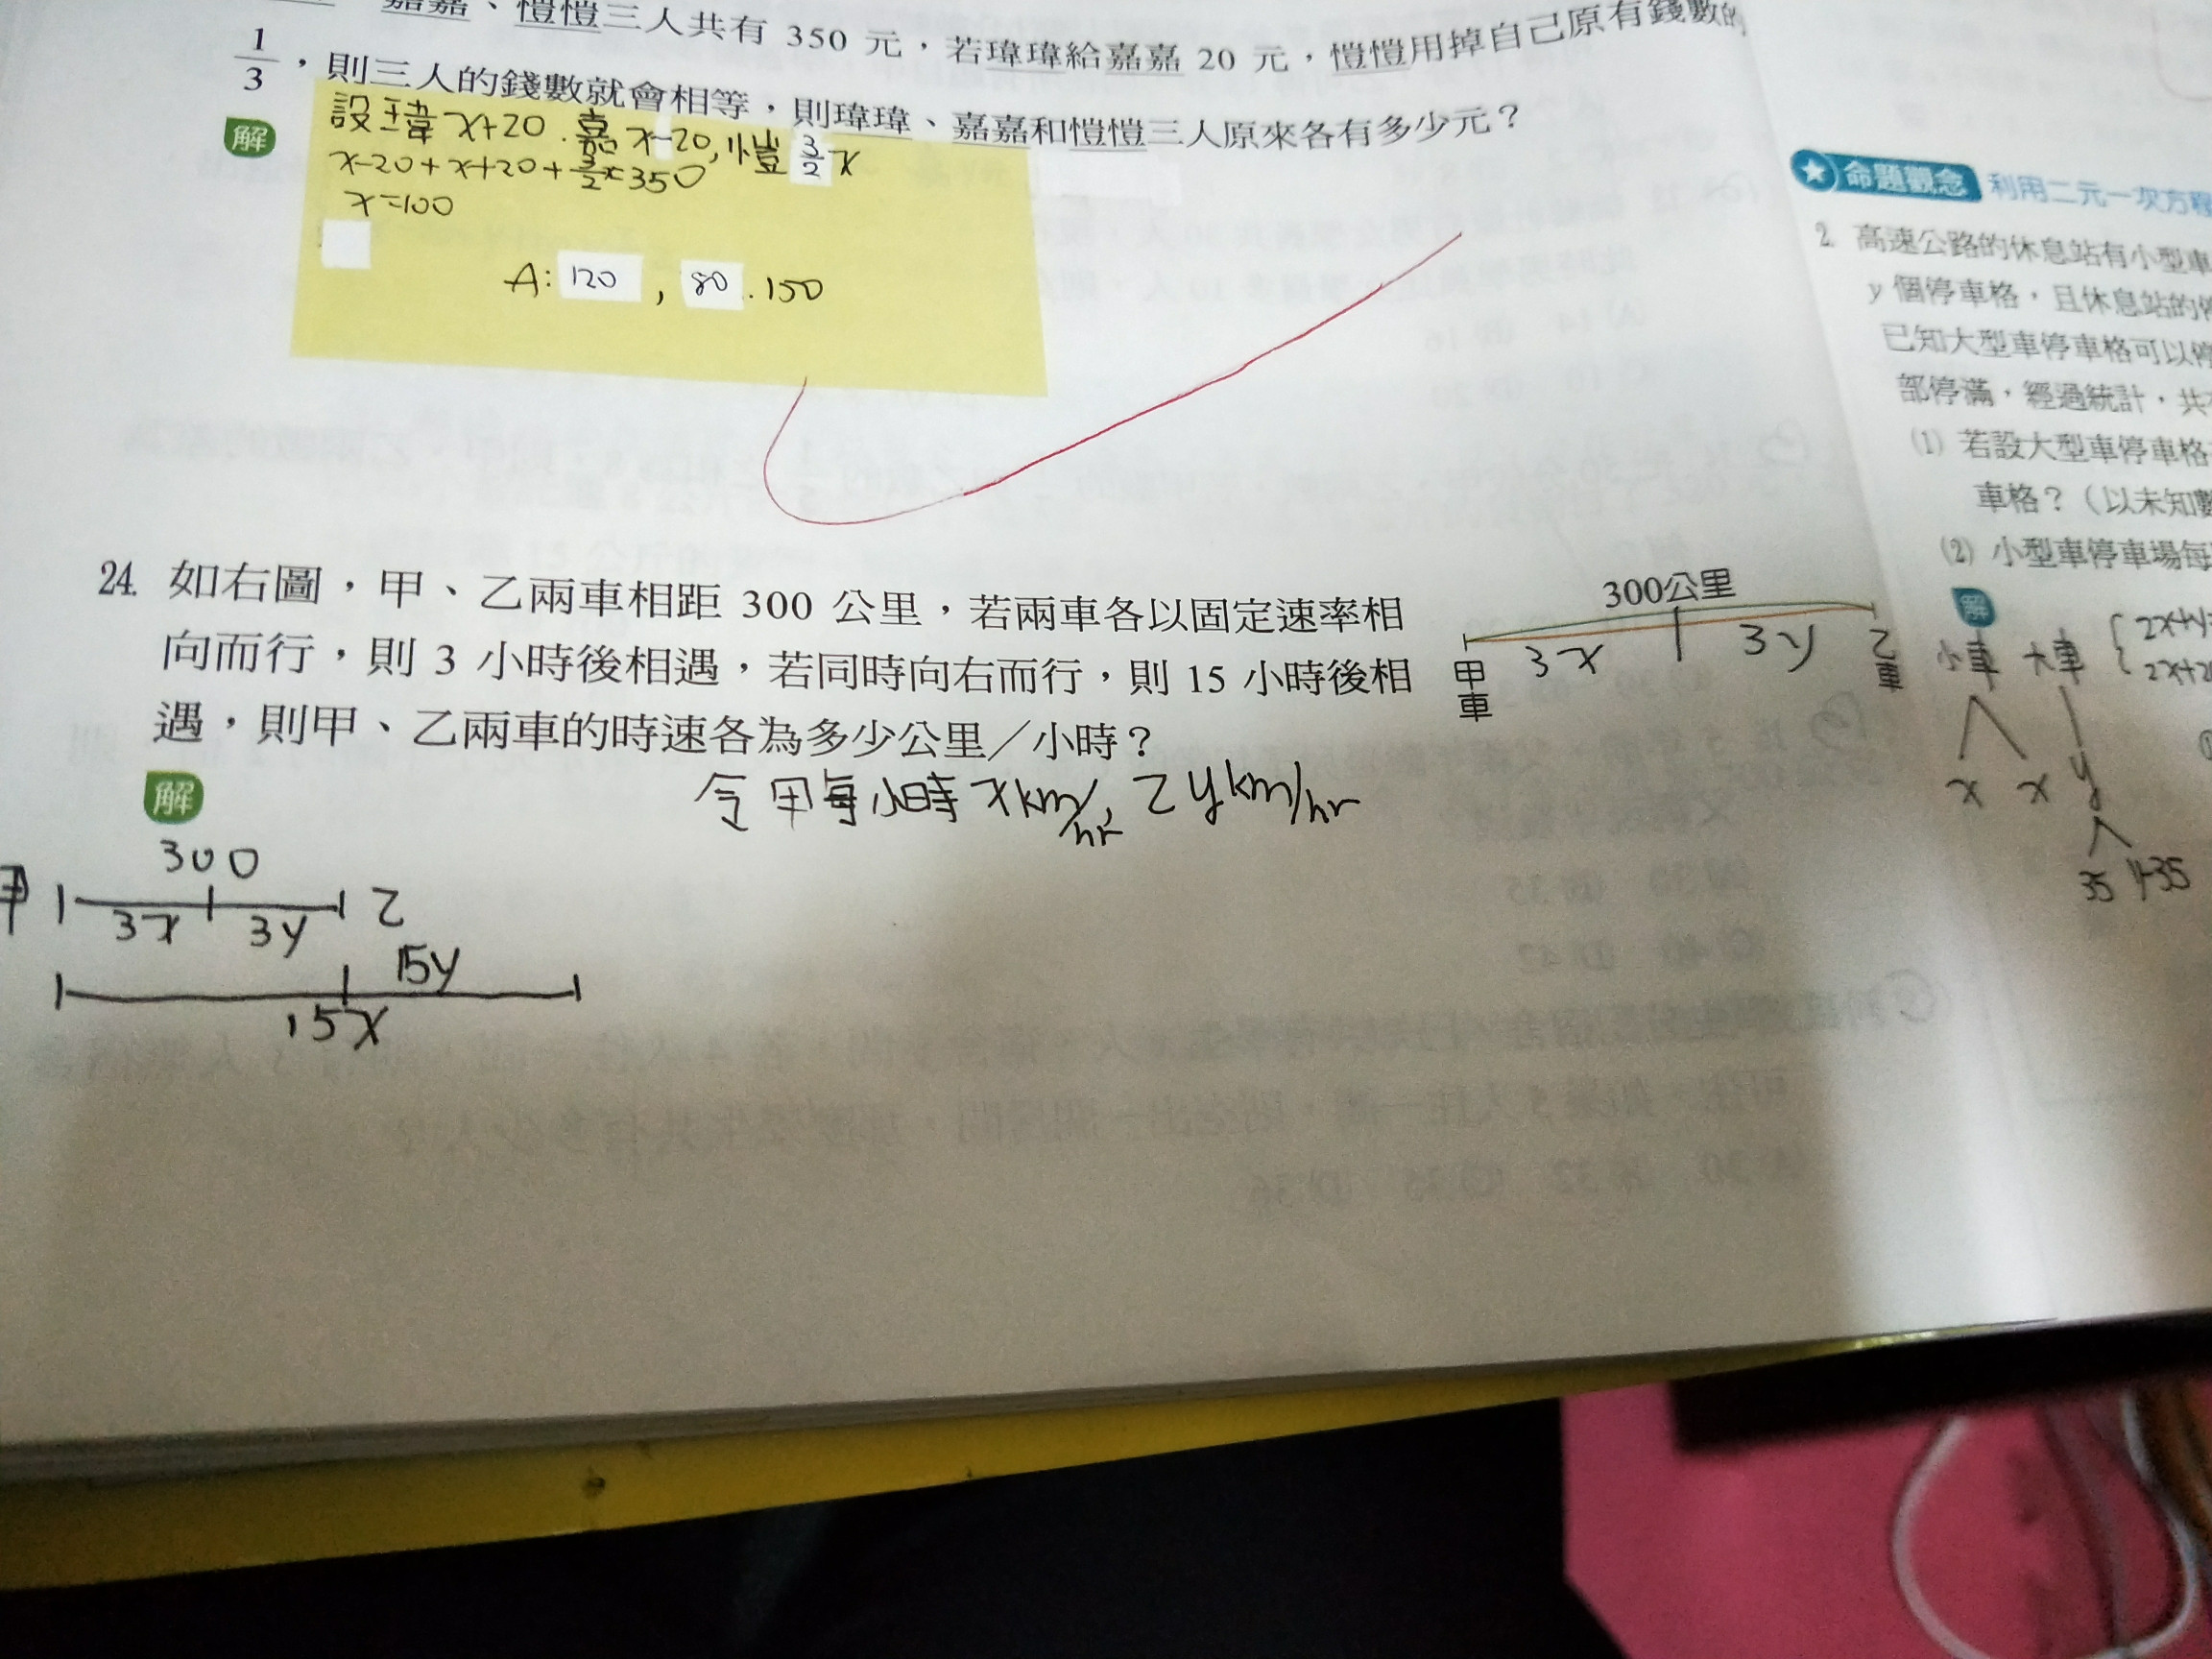 嘉嘉、愷愷三人共有 350 元，若瑋瑋給嘉嘉 20 元，愷愷用掉自己原有錢數的
1/3，則三人的錢數就會相等，則瑋瑋、嘉嘉和愷愷三人原來各有多少元？
解
設瑋 x+20 . 嘉 x-20, 愷 3/2 x
x-20+x+20+3/2x=350
x=100
A: 120 , 80 . 150
24. 如右圖，甲、乙兩車相距 300 公里，若兩車各以固定速率相
向而行，則 3 小時後相遇，若同時向右而行，則 15 小時後相
遇，則甲、乙兩車的時速各為多少公里／小時？
300公里
3x 3y
甲車 乙車
解
令甲每小時 x km/hr, 乙 y km/hr
300
甲 3x 3y 乙
15y
15x
命題觀念 利用二元一次方程
2. 高速公路的休息站有小型車
y 個停車格，且休息站的
已知大型車停車格可以停
部停滿，經過統計，共
(1) 若設大型車停車格
車格？（以未知數
(2) 小型車停車場每
解
小車 大車
x x y
35 y-35